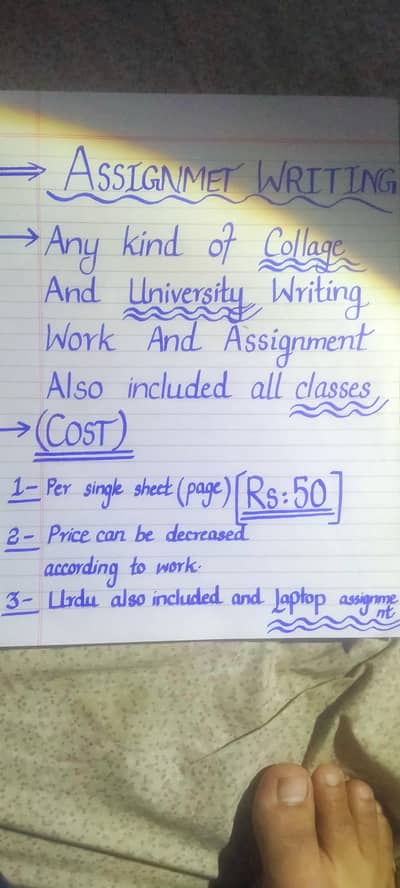 ⇒ ASSIGNMET WRITING
→ Any kind of Collage
And University Writing
Work And Assignment
Also included all classes
→ (COST)
1- Per single sheet (page) [Rs: 50]
2- Price can be decreased
according to work.
3- Urdu also included and laptop assignme
nt